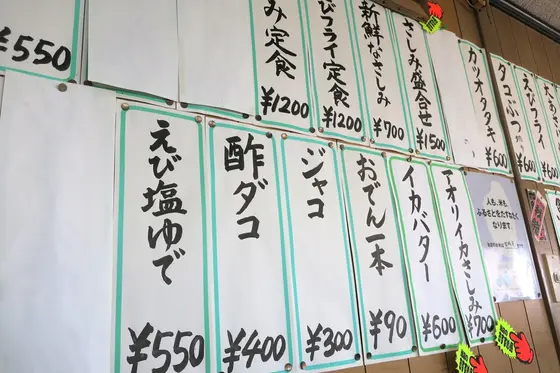 ¥550
み定食
¥1200
びフライ定食
¥1200
新鮮なさしみ
¥700
さしみ盛合せ
¥1500
カツオタタキ
¥600
タコぶつ
¥600
えびフライ
¥600
えび塩ゆで
¥550
酢ダコ
¥400
ジャコ
¥300
おでん一本
¥90
イカバター
¥600
オリイカさしみ
¥700
人も、米も、
ふるさとをたすなたく
なります。